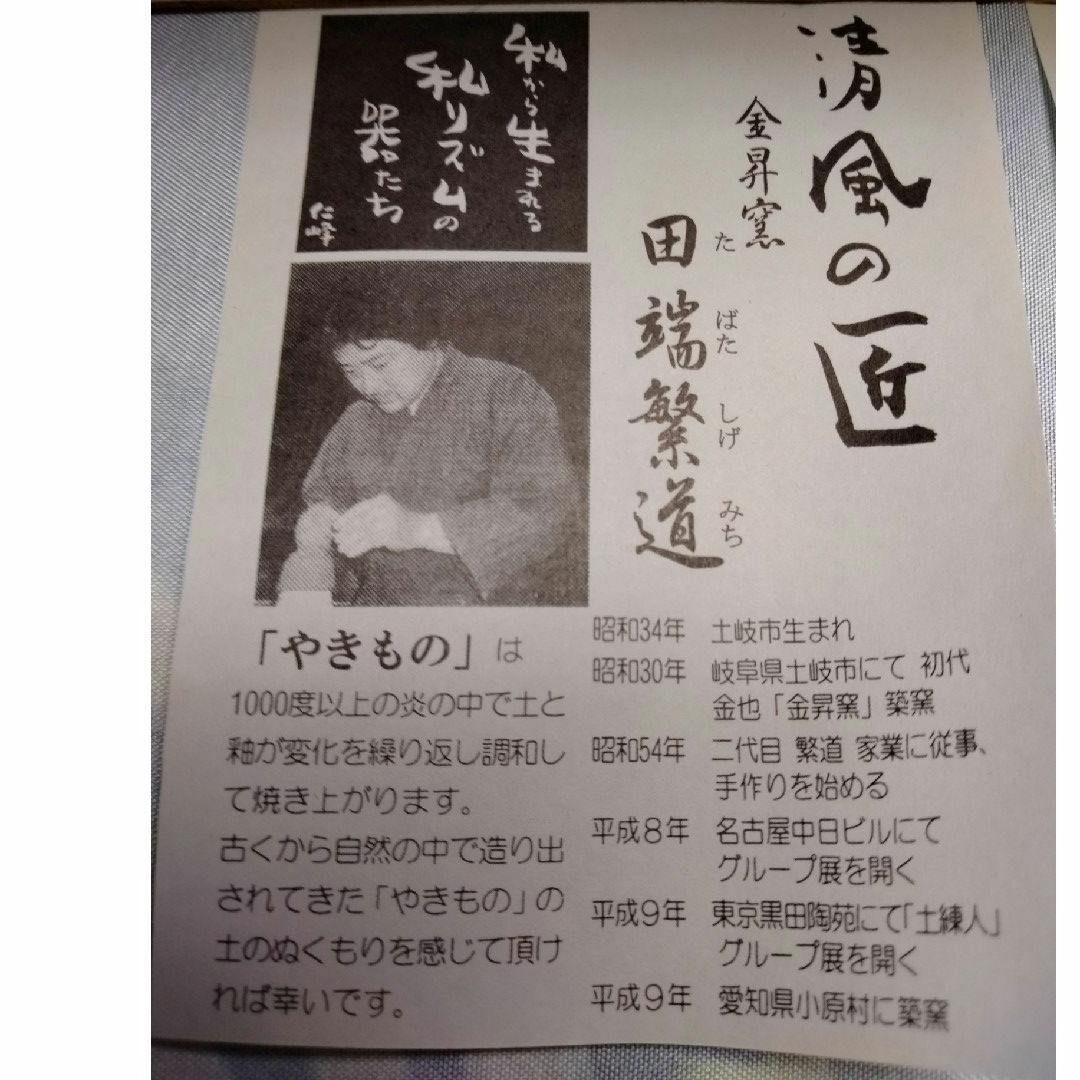 清風の匠
金昇窯
田端繁道
た ばた しげ みち
私から生まれる
私リズムの
器たち
仁峰
「やきもの」は
1000度以上の炎の中で土と
釉が変化を繰り返し調和し
て焼き上がります。
古くから自然の中で造り出
されてきた「やきもの」の
土のぬくもりを感じて頂け
れば幸いです。
昭和34年 土岐市生まれ
昭和30年 岐阜県土岐市にて 初代
金也「金昇窯」築窯
昭和54年 二代目 繁道 家業に従事、
手作りを始める
平成8年 名古屋中日ビルにて
グループ展を開く
平成9年 東京黒田陶苑にて「土練人」
グループ展を開く
平成9年 愛知県小原村に築窯